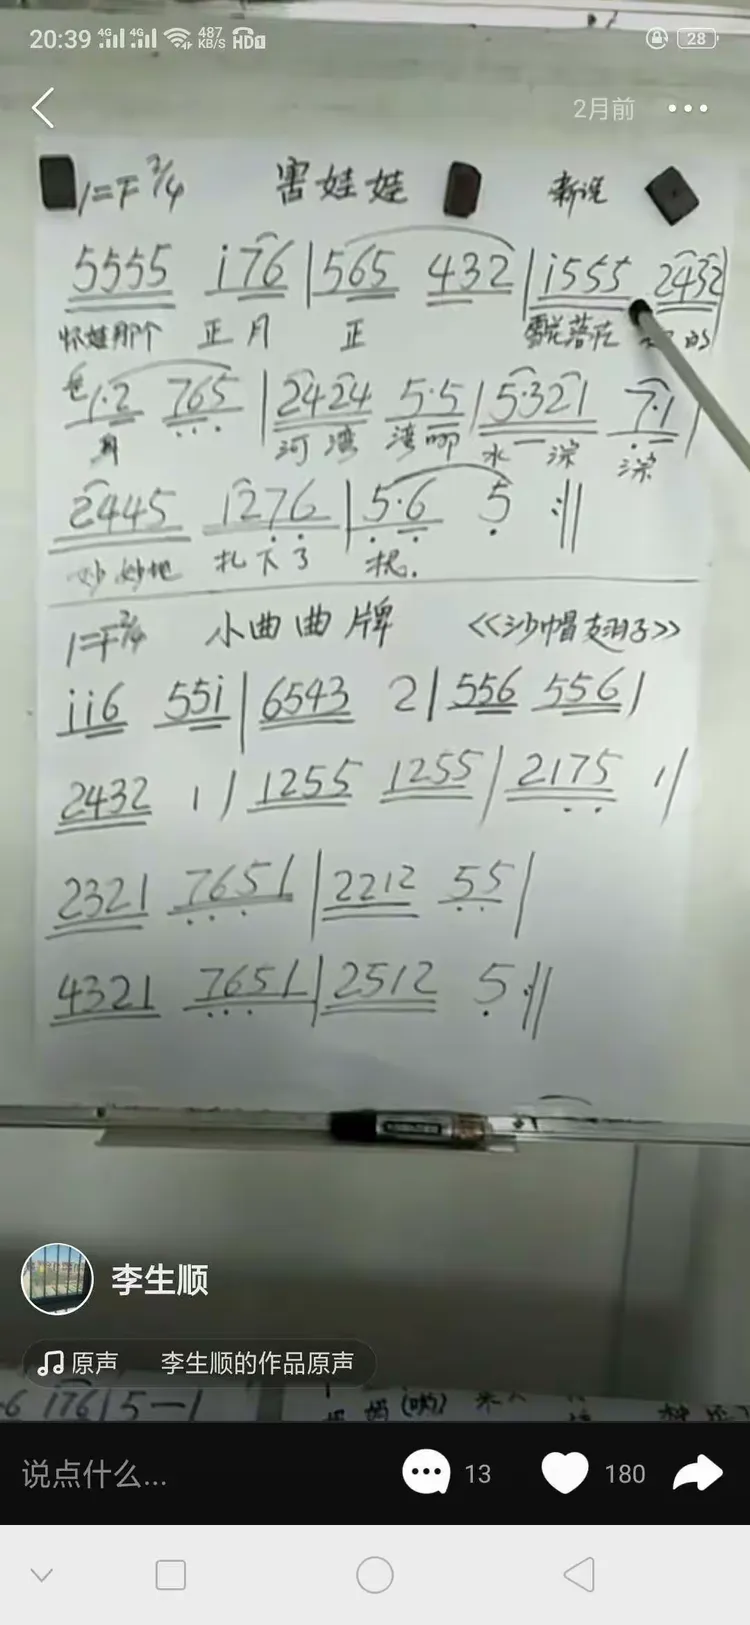 20:39 4G 4G 487 KB/S HD1 28
2月前
1=F 2/4 害娃娃 新说
5555 i76 | 565 432 | i555 2432 |
怀娃那个 正月 正 雪花落在 的
1·2 765 | 2424 5·5 | 5·321 7·1 |
身 河湾 湾 水 深 深
2445 1276 | 5·6 5 :||
妙妙地 扎下了 根.
1=F 2/4 小曲曲牌 <<沙帽翅子>>
ii6 55i | 6543 2 | 556 556 |
2432 1 | 1255 1255 | 2175 1 |
2321 7651 | 2212 55 |
4321 7651 | 2512 5 :||
李生顺
原声 李生顺的作品原声
6 i76 | 5 — 1
说点什么... 13 180